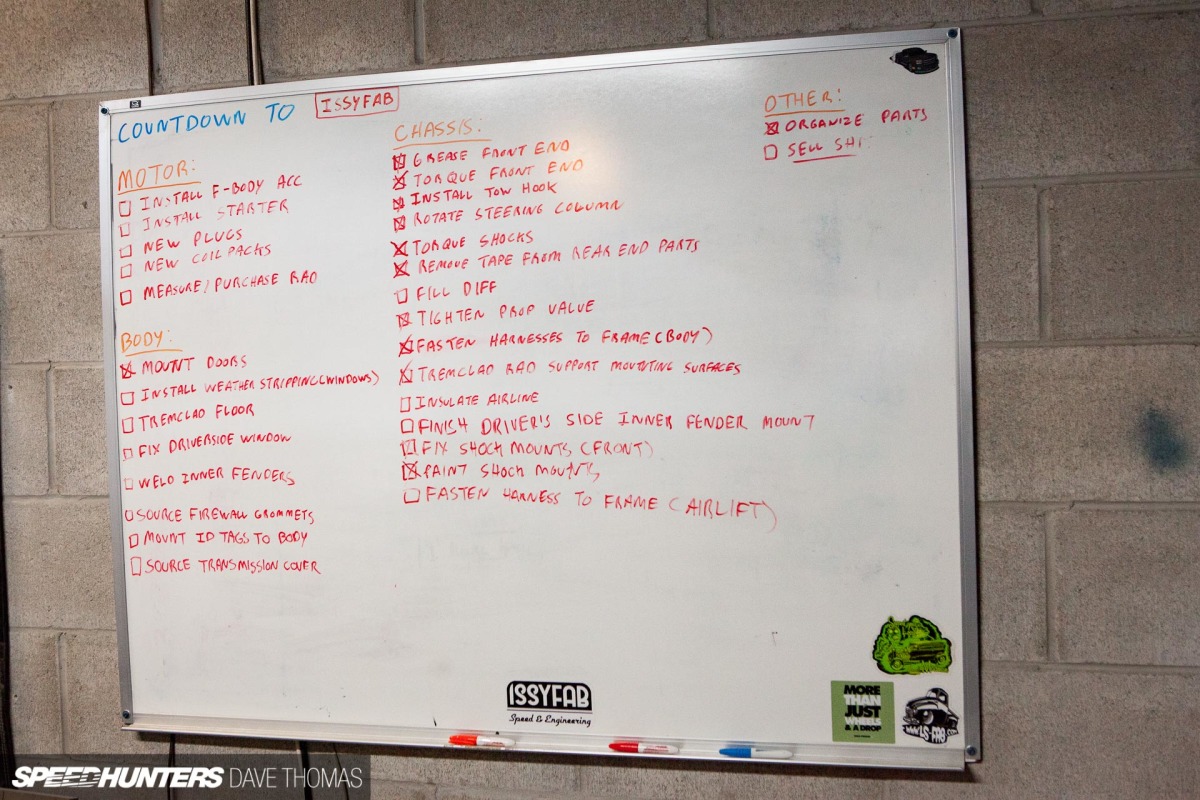 COUNTDOWN TO ISSYFAB
MOTOR:
INSTALL F-BODY ACC
INSTALL STARTER
NEW PLUGS
NEW COIL PACKS
MEASURE/PURCHASE RAD
BODY:
MOUNT DOORS
INSTALL WEATHER STRIPPING (WINDOWS)
TREMCLAD FLOOR
FIX DRIVERSIDE WINDOW
WELD INNER FENDERS
SOURCE FIREWALL GROMMETS
MOUNT ID TAGS TO BODY
SOURCE TRANSMISSION COVER
CHASSIS:
GREASE FRONT END
TORQUE FRONT END
INSTALL TOW HOOK
ROTATE STEERING COLUMN
TORQUE SHOCKS
REMOVE TAPE FROM REAR END PARTS
FILL DIFF
TIGHTEN PROP VALUE
FASTEN HARNESSES TO FRAME (BODY)
TREMCLAD RAD SUPPORT MOUNTING SURFACES
INSULATE AIRLINE
FINISH DRIVER'S SIDE INNER FENDER MOUNT
FIX SHOCK MOUNTS (FRONT)
PAINT SHOCK MOUNTS
FASTEN HARNESS TO FRAME (AIRLIFT)
OTHER:
ORGANIZE PARTS
SELL
ISSYFAB
Speed & Engineering
MORE
THAN
JUST
& A DROP
SPEEDHUNTERS DAVE THOMAS